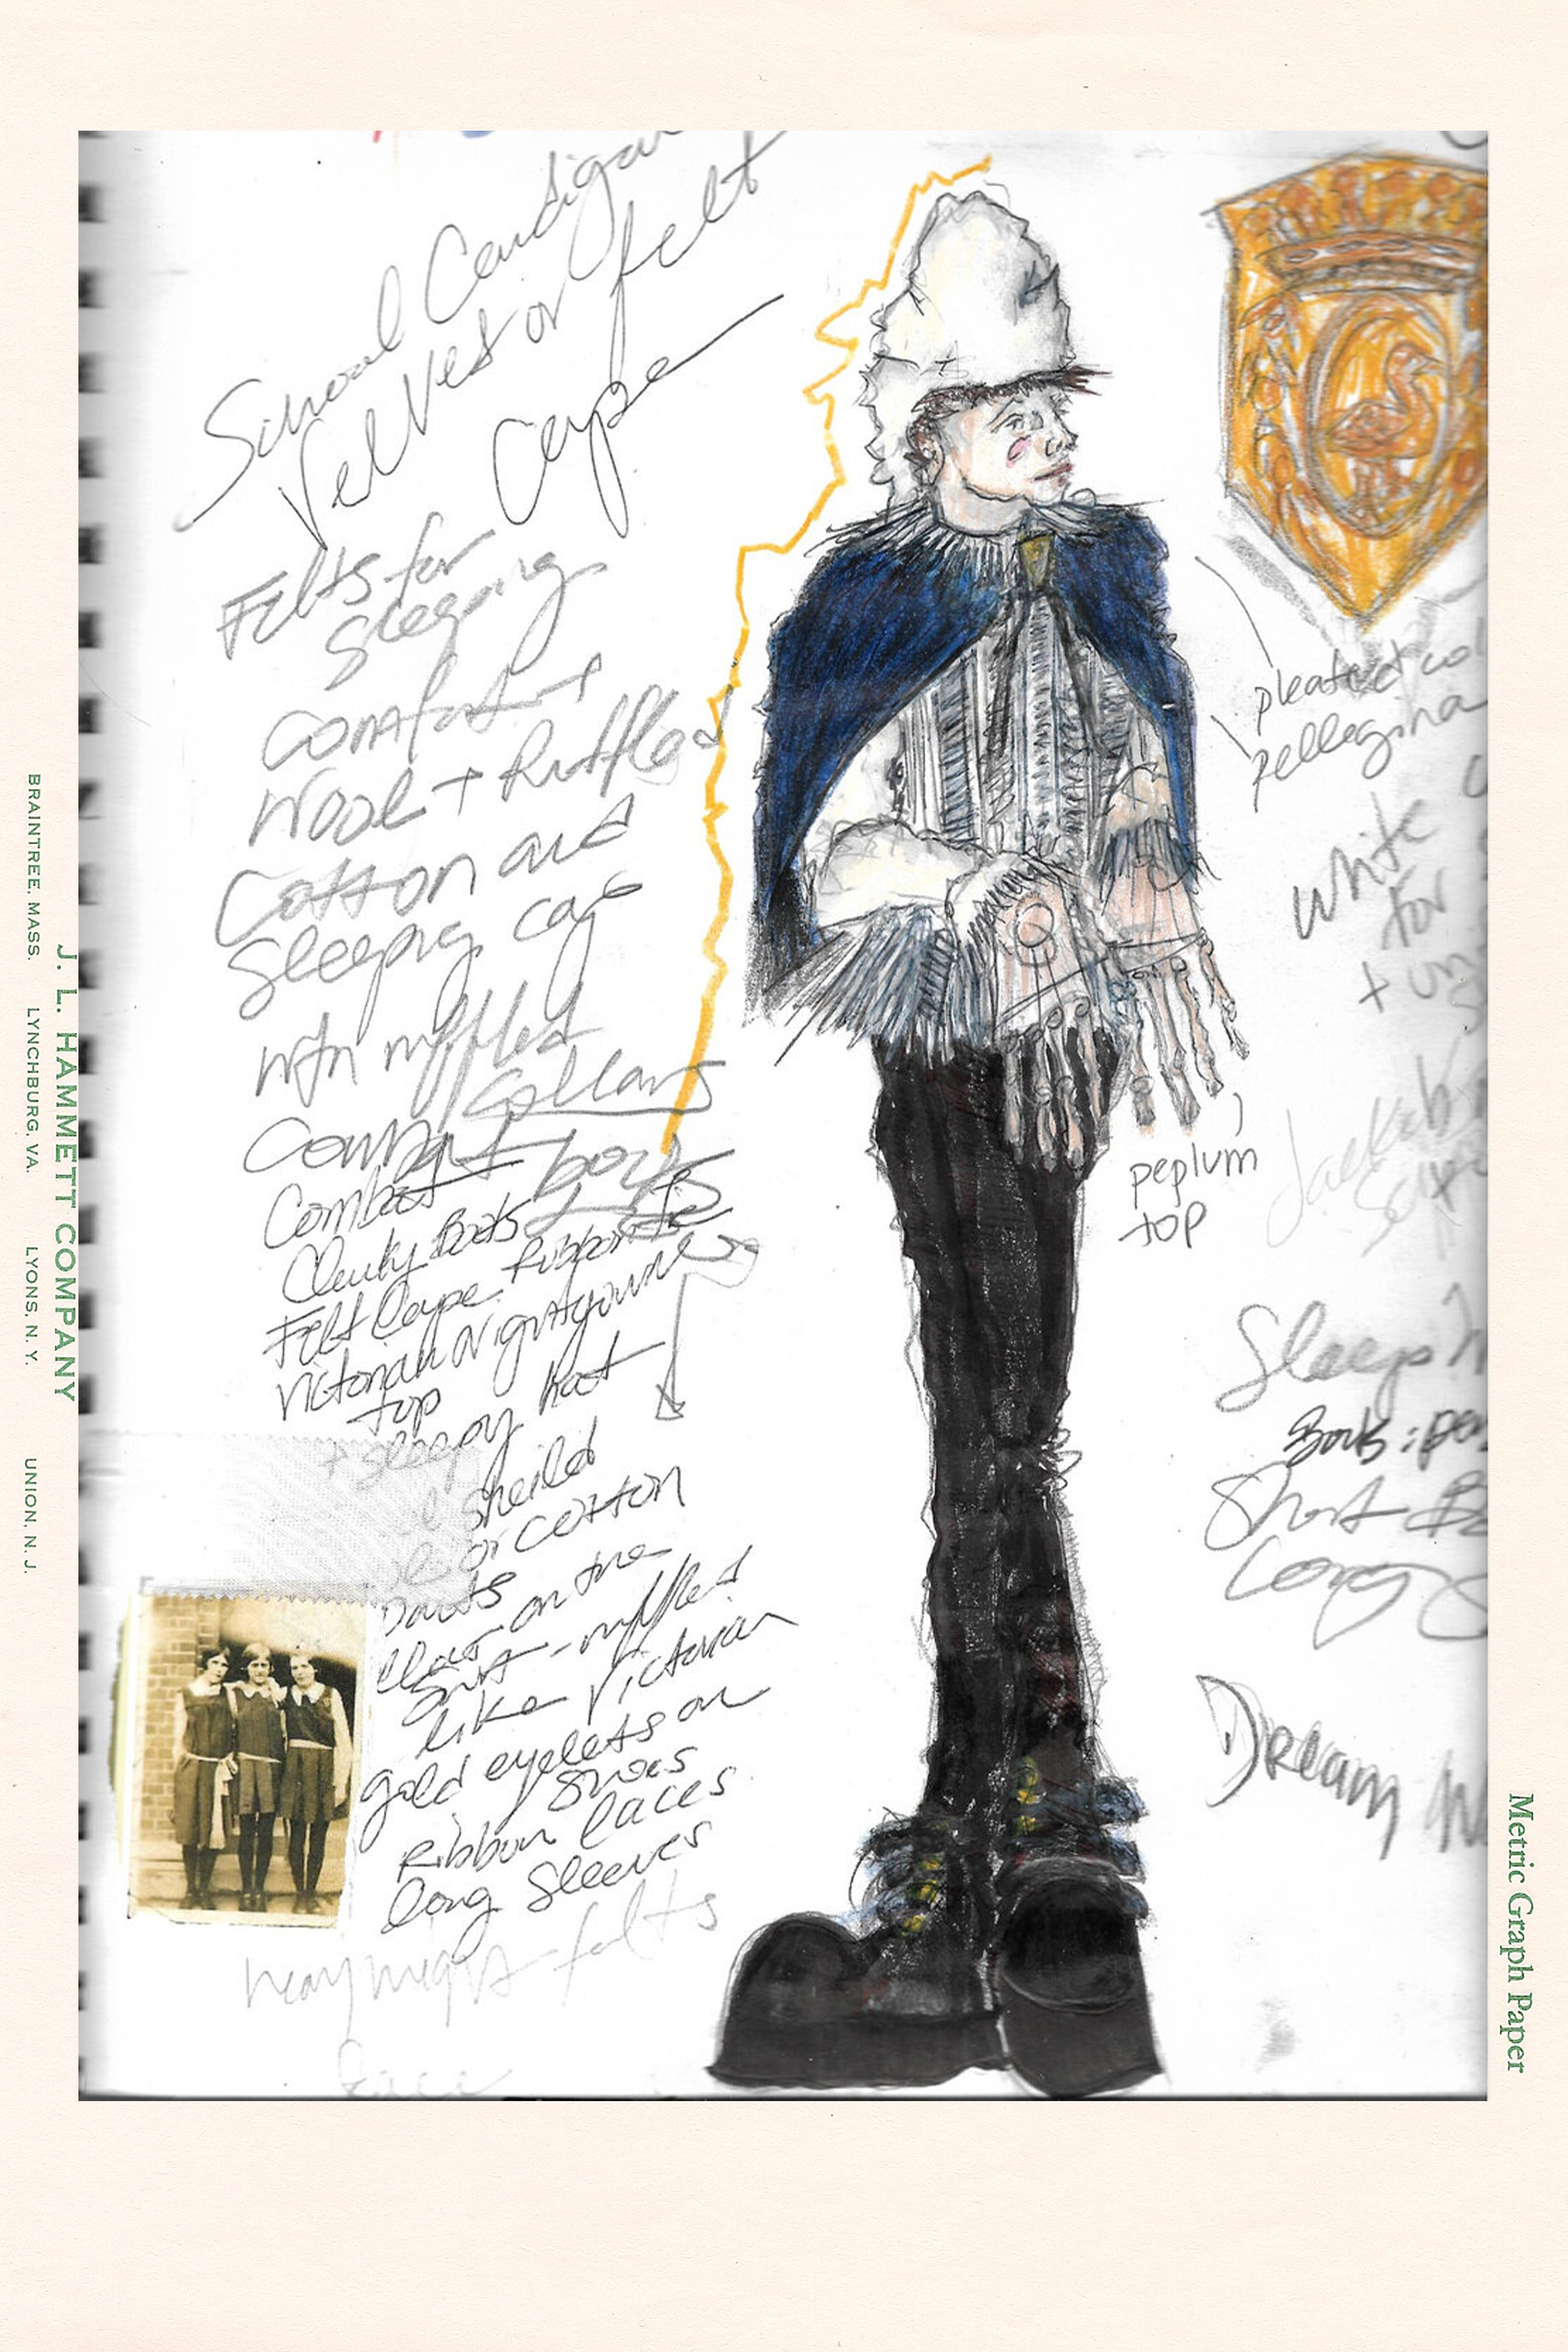 School Cardigan
Velvet or felt
Cape
Felts for
Sleeping
comfort +
Wool + Ruffles
Cotton and
Sleeping cap
with ruffled
Collars
Combat boots
Combat
Clunky Boots
Felt Cape Ribbon tie
Victorian Nightgown
top
+ sleepy hat
sheild
or cotton
pants
on the
- ruffled
like Victorian
gold eyelets on
shoes
Ribbon laces
long Sleeves
felts
pleated col
pellegrina
white
for
+ un
peplum
top
Sleep
Boots : pe
Short B
Long S
Dream
J. L. HAMMETT COMPANY
BRAINTREE, MASS. LYNCHBURG, VA. LYONS, N. Y. UNION, N. J.
Metric Graph Paper